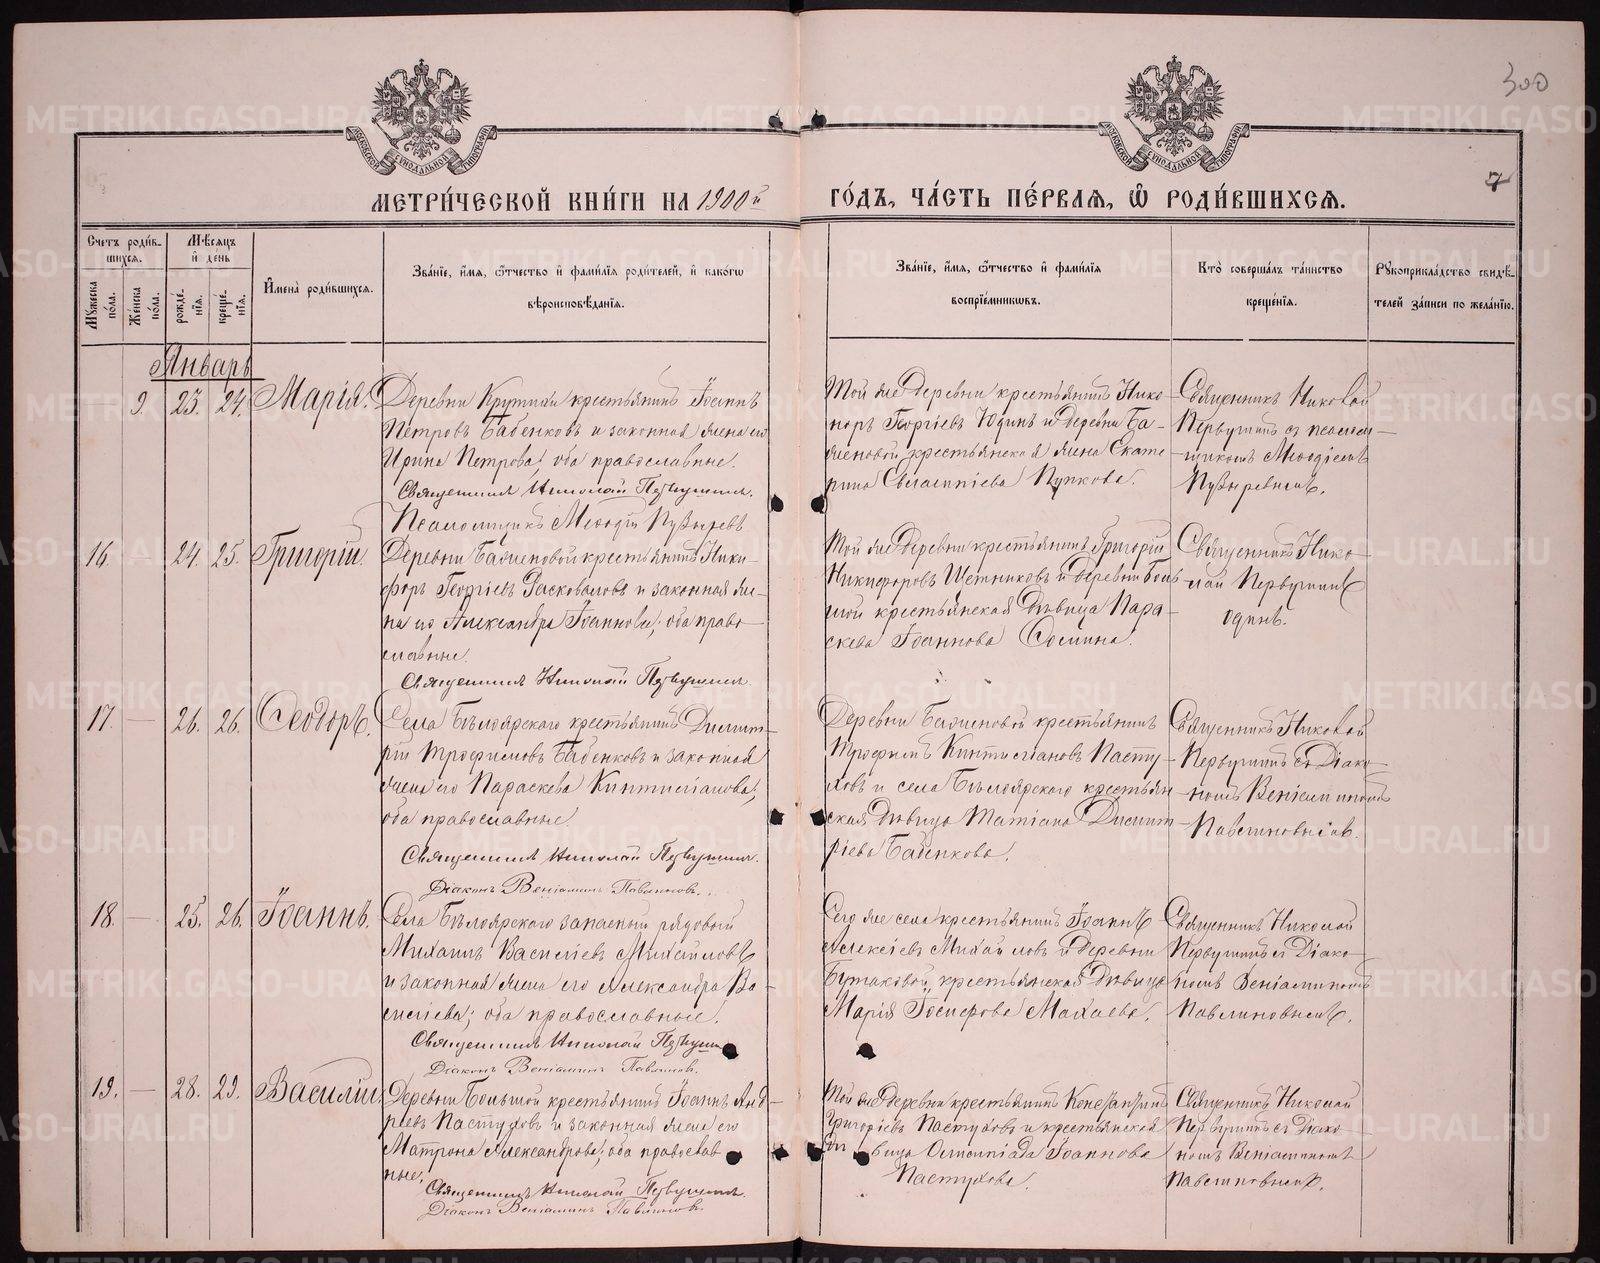 300
7
МОСКОВСКОЙ СѴНОДАЛЬНОЙ ТИПОГРАФІИ
МОСКОВСКОЙ СѴНОДАЛЬНОЙ ТИПОГРАФІИ
МЕТРИ́ЧЕСКОЙ КНИ́ГИ НА 1900й
ГО́ДЪ, ЧА́СТЬ ПЕ́РВАѦ, Ѽ РОДИ́ВШИХСѦ.
Счетъ роди́в-
шихсѧ.
Мѣ́сѧцъ
и҆ де́нь
Мꙋ́жеска по́ла.
Же́нска по́ла.
рожде́-нїѧ.
креще́-нїѧ.
И҆мена̀ роди́вшихсѧ.
Зва́нїе, и҆́мѧ, ѻ҆́тчество и҆ фами́лїѧ роди́телей, и҆ како́гѡ
вѣроисповѣ́данїѧ.
Зва́нїе, и҆́мѧ, ѻ҆́тчество и҆ фами́лїѧ
воспрїе́мникѡвъ.
Кто̀ соверша́лъ та́инство
креще́нїѧ.
Рꙋкоприкла́дство свидѣ́-
телей за́писи по жела́нїю.
Январь
— 9. 23. 24. Марія.
Деревни Крутихи крестьянинъ Іоаннъ
Петровъ Бабенковъ и законная жена его
Ирина Петрова; оба православные.
Священникъ Николай Первушинъ.
Псаломщикъ Меѳодій Пузыревъ
Той же деревни крестьянинъ Ника-
норъ Георгіевъ Юдинъ и деревни Ба-
женовой крестьянская жена Екате-
рина Евлампіева Пупкова.
Священникъ Николай
Первушинъ съ псалом-
щикомъ Меѳодіемъ
Пузыревымъ.
16. — 24. 25. Григорій.
Деревни Баженовой крестьянинъ Ники-
форъ Георгіевъ Расковаловъ и законная же-
на его Александра Іоаннова; оба право-
славные.
Священникъ Николай Первушинъ.
Той же деревни крестьянинъ Григорій
Никифоровъ Щетниковъ и деревни Боль-
шой крестьянская дѣвица Пара-
скева Іоаннова Сомина.
Священникъ Нико-
лай Первушинъ
одинъ.
17. — 26. 26. Ѳеодоръ.
Села Бѣлоярскаго крестьянинъ Димит-
рій Трофимовъ Бабенковъ и законная
жена его Параскева Кинтиліанова;
оба православные.
Священникъ Николай Первушинъ.
Діаконъ Веніаминъ Павлиновъ.
Деревни Баженовой крестьянинъ
Трофимъ Кинтиліановъ Пасту-
ховъ и села Бѣлоярскаго крестьян-
ская дѣвица Татіана Димит-
ріева Бабенкова.
Священникъ Николай
Первушинъ съ Діако-
номъ Веніаминомъ
Павлиновымъ.
18. — 25. 26. Іоаннъ.
Села Бѣлоярскаго запасный рядовой
Михаилъ Василіевъ Михайловъ
и законная жена его Александра Ва-
силіева; оба православные.
Священникъ Николай Первуши
Діаконъ Веніаминъ Павлиновъ.
Сего же села крестьянинъ Іоаннъ
Алексіевъ Михайловъ и деревни
Бутаковой крестьянская дѣвица
Марія Іосифова Махаева.
Священникъ Николай
Первушинъ съ Діако-
номъ Веніаминомъ
Павлиновымъ.
19. — 28. 29. Василій.
Деревни Большой крестьянинъ Іоаннъ Анд-
реевъ Пастуховъ и законная жена его
Матрона Александрова; оба православ-
ные.
Священникъ Николай Первушинъ.
Діаконъ Веніаминъ Павлиновъ.
Той же деревни крестьянинъ Константинъ
Григоріевъ Пастуховъ и крестьянская
дѣвица Олимпіада Іоаннова
Пастухова.
Священникъ Николай
Первушинъ съ Діако-
номъ Веніаминомъ
Павлиновымъ.
METRIKI.GASO-URAL.RU